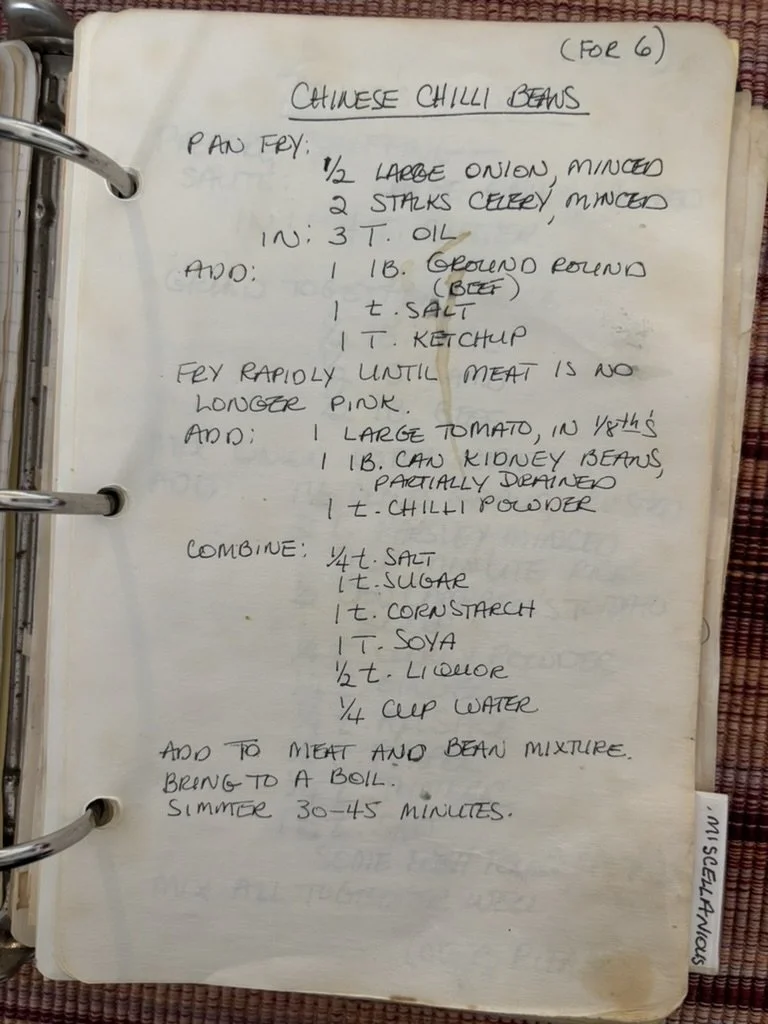 (FOR 6)
CHINESE CHILLI BEANS
PAN FRY:
1/2 LARGE ONION, MINCED
2 STALKS CELERY, MINCED
IN: 3 T. OIL
ADD: 1 lB. GROUND ROUND
(BEEF)
1 t. SALT
1 T. KETCHUP
FRY RAPIDLY UNTIL MEAT IS NO
LONGER PINK.
ADD: 1 LARGE TOMATO, IN 1/8th's
1 lB. CAN KIDNEY BEANS,
PARTIALLY DRAINED
1 t. CHILLI POWDER
COMBINE: 1/4 t. SALT
1 t. SUGAR
1 t. CORNSTARCH
1 T. SOYA
1/2 t. LIQUOR
1/4 CUP WATER
ADD TO MEAT AND BEAN MIXTURE.
BRING TO A BOIL.
SIMMER 30-45 MINUTES.
MISCELLANIOUS